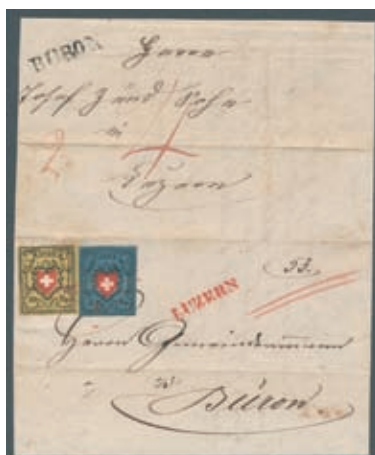 BURON
Herrn
Josef Zünd Sohn
in
Luzern
2.
53.
LUZERN
Herrn Gemeindeammann
in
Büron